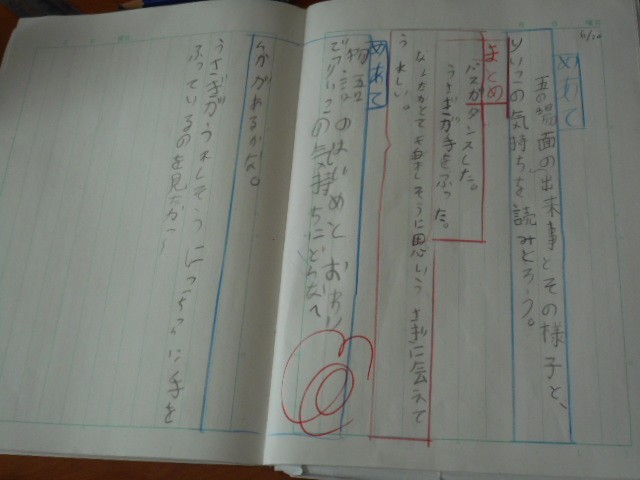 6/20
めあて
五の場面の出来事とその様子と、
りいこの気持ちを読みとろう。
まとめ
バスがダンスした。
うさぎが手をふった。
なんだかとても楽しそうに思いうさぎに会えて
うれしい。
めあて
物語のはじめとおわり
でりいこの気持ちにどんなへ
んかがあるかな。
うさぎがうれしそうにこちらに手を
ふっているのを見たから